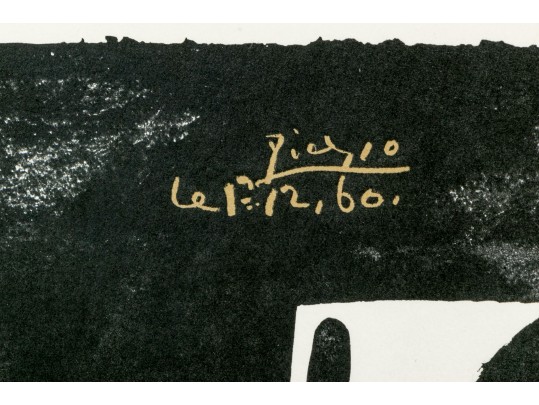 Picasso
Le 1er 12, 60.